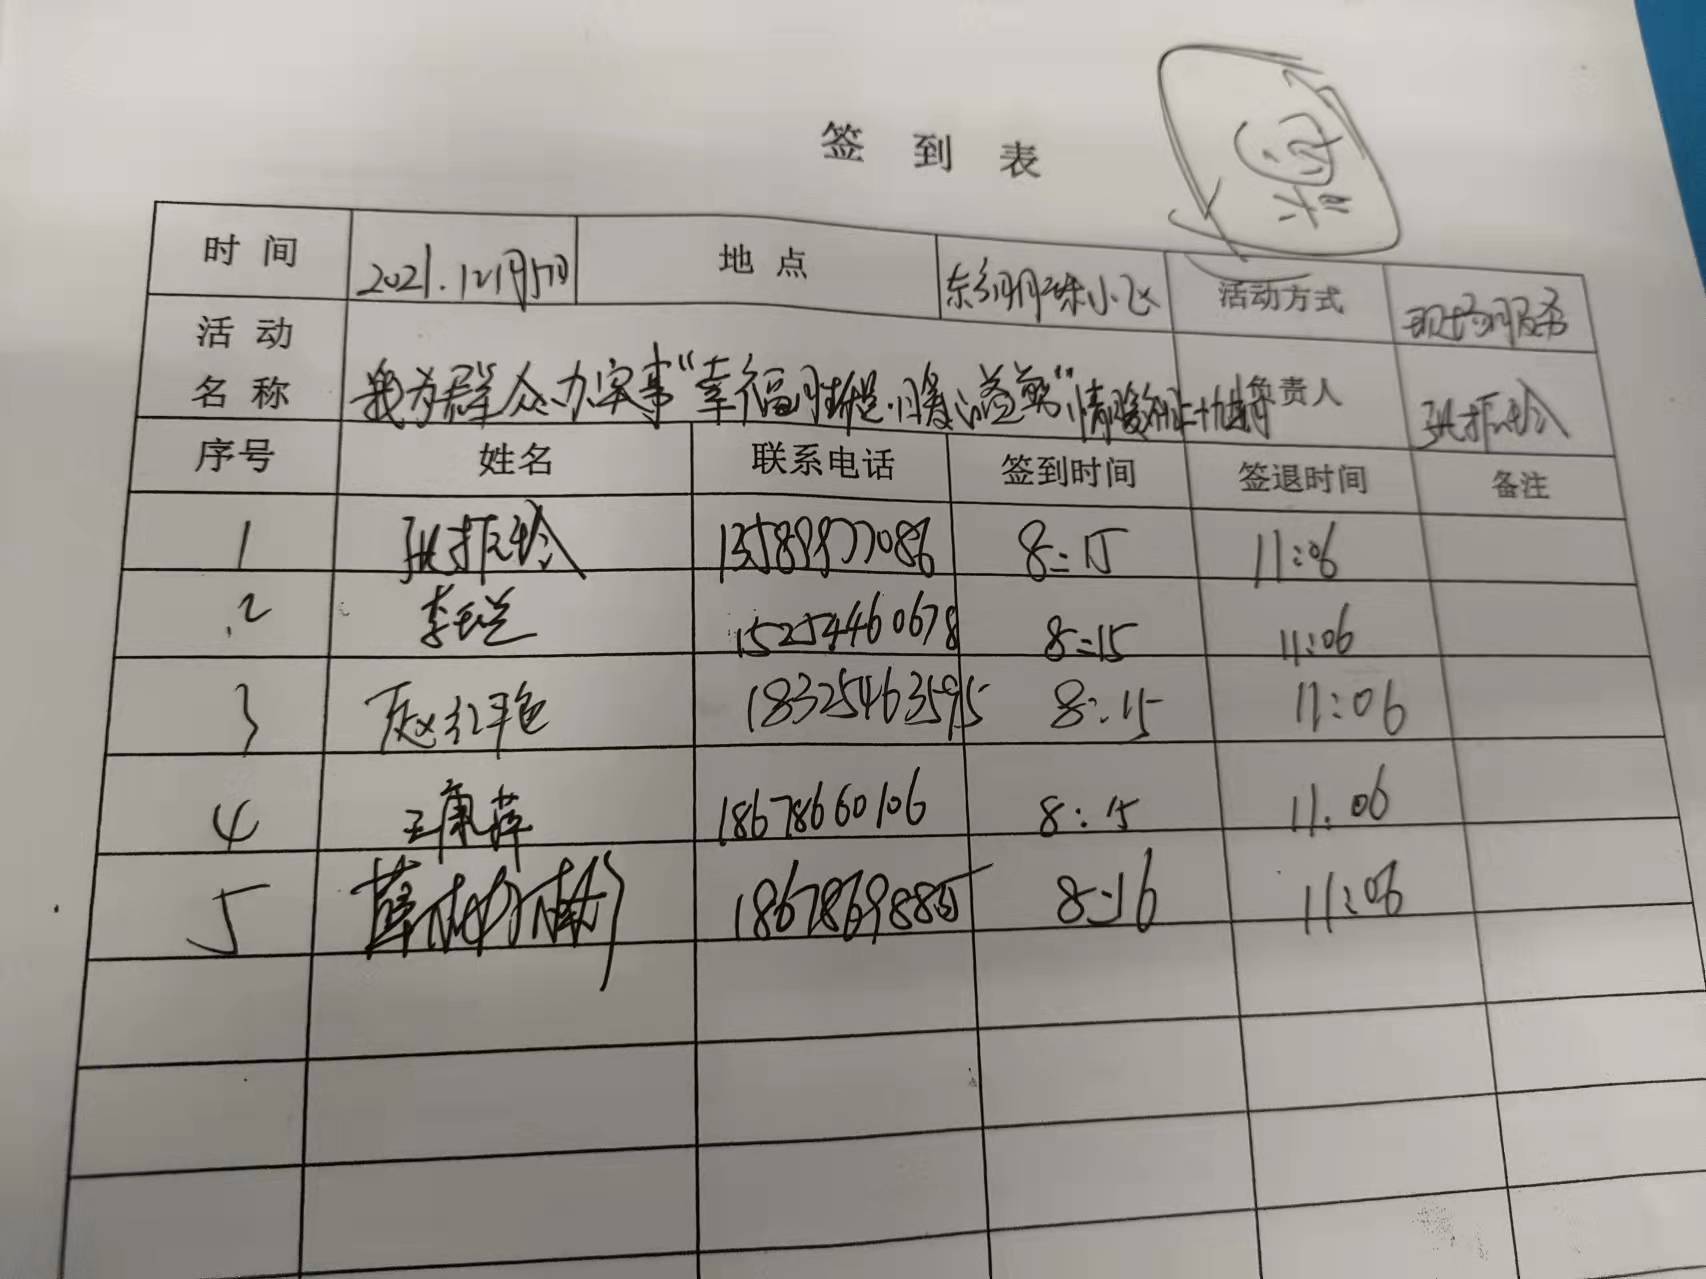 签到表
时间 2021.12月5日 地点 东方明珠小区 活动方式 现场服务
活动名称 我为群众办实事"幸福 益剪"情暖 负责人 张振玲
序号 姓名 联系电话 签到时间 签退时间 备注
1 张振玲 13589977086 8:15 11:06
2 李 15254460678 8:15 11:06
3 赵红艳 18325463595 8:15 11:06
4 王康萍 18678660106 8:15 11:06
5 薛 8:16 11:06